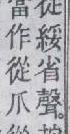 從綏省聲。
當作從爪從